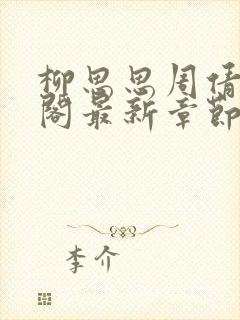 柳思思周倩
阁最新章节
李介